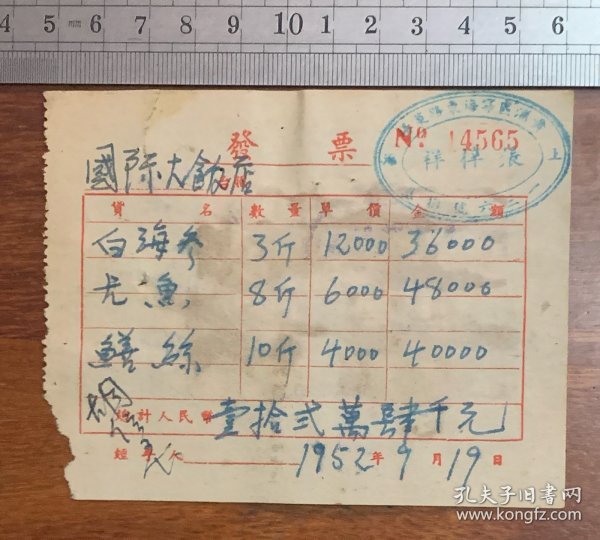 4 5 6 7 8 9 10 1 2 3 4 5 6
發 票 No. 14565
國际大飯店 台照
貨 名 數 量 單 價 金 額
白海参 3斤 12000 36000
尤漁 8斤 6000 48000
鱔絲 10斤 4000 40000
總計人民幣 壹拾弍萬肆千元
經手人 1952年9月19日
孔夫子旧書网
www.kongfz.com